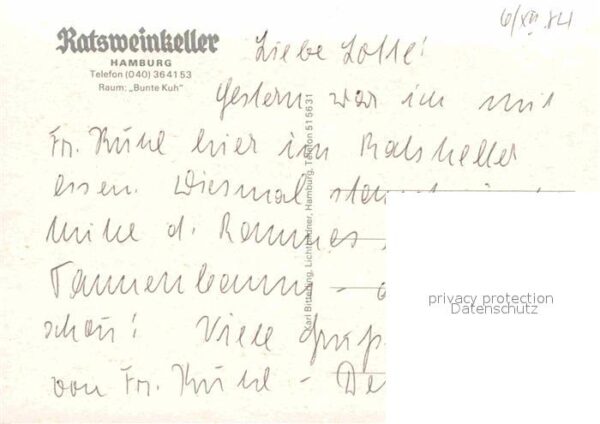 6/XII.84
Ratsweinkeller
HAMBURG
Telefon (040) 364153
Raum: „Bunte Kuh"
Liebe Lotte!
Gestern war ich mit
Fr. Kühl hier im Ratskeller
essen. Diesmal
Mitte d. Raumes
Tannenbaum –
schön! Viele
von Fr. Kühl –
Karl Bittering, Lichtbildner, Hamburg, Telefon 515631
privacy protection
Datenschutz